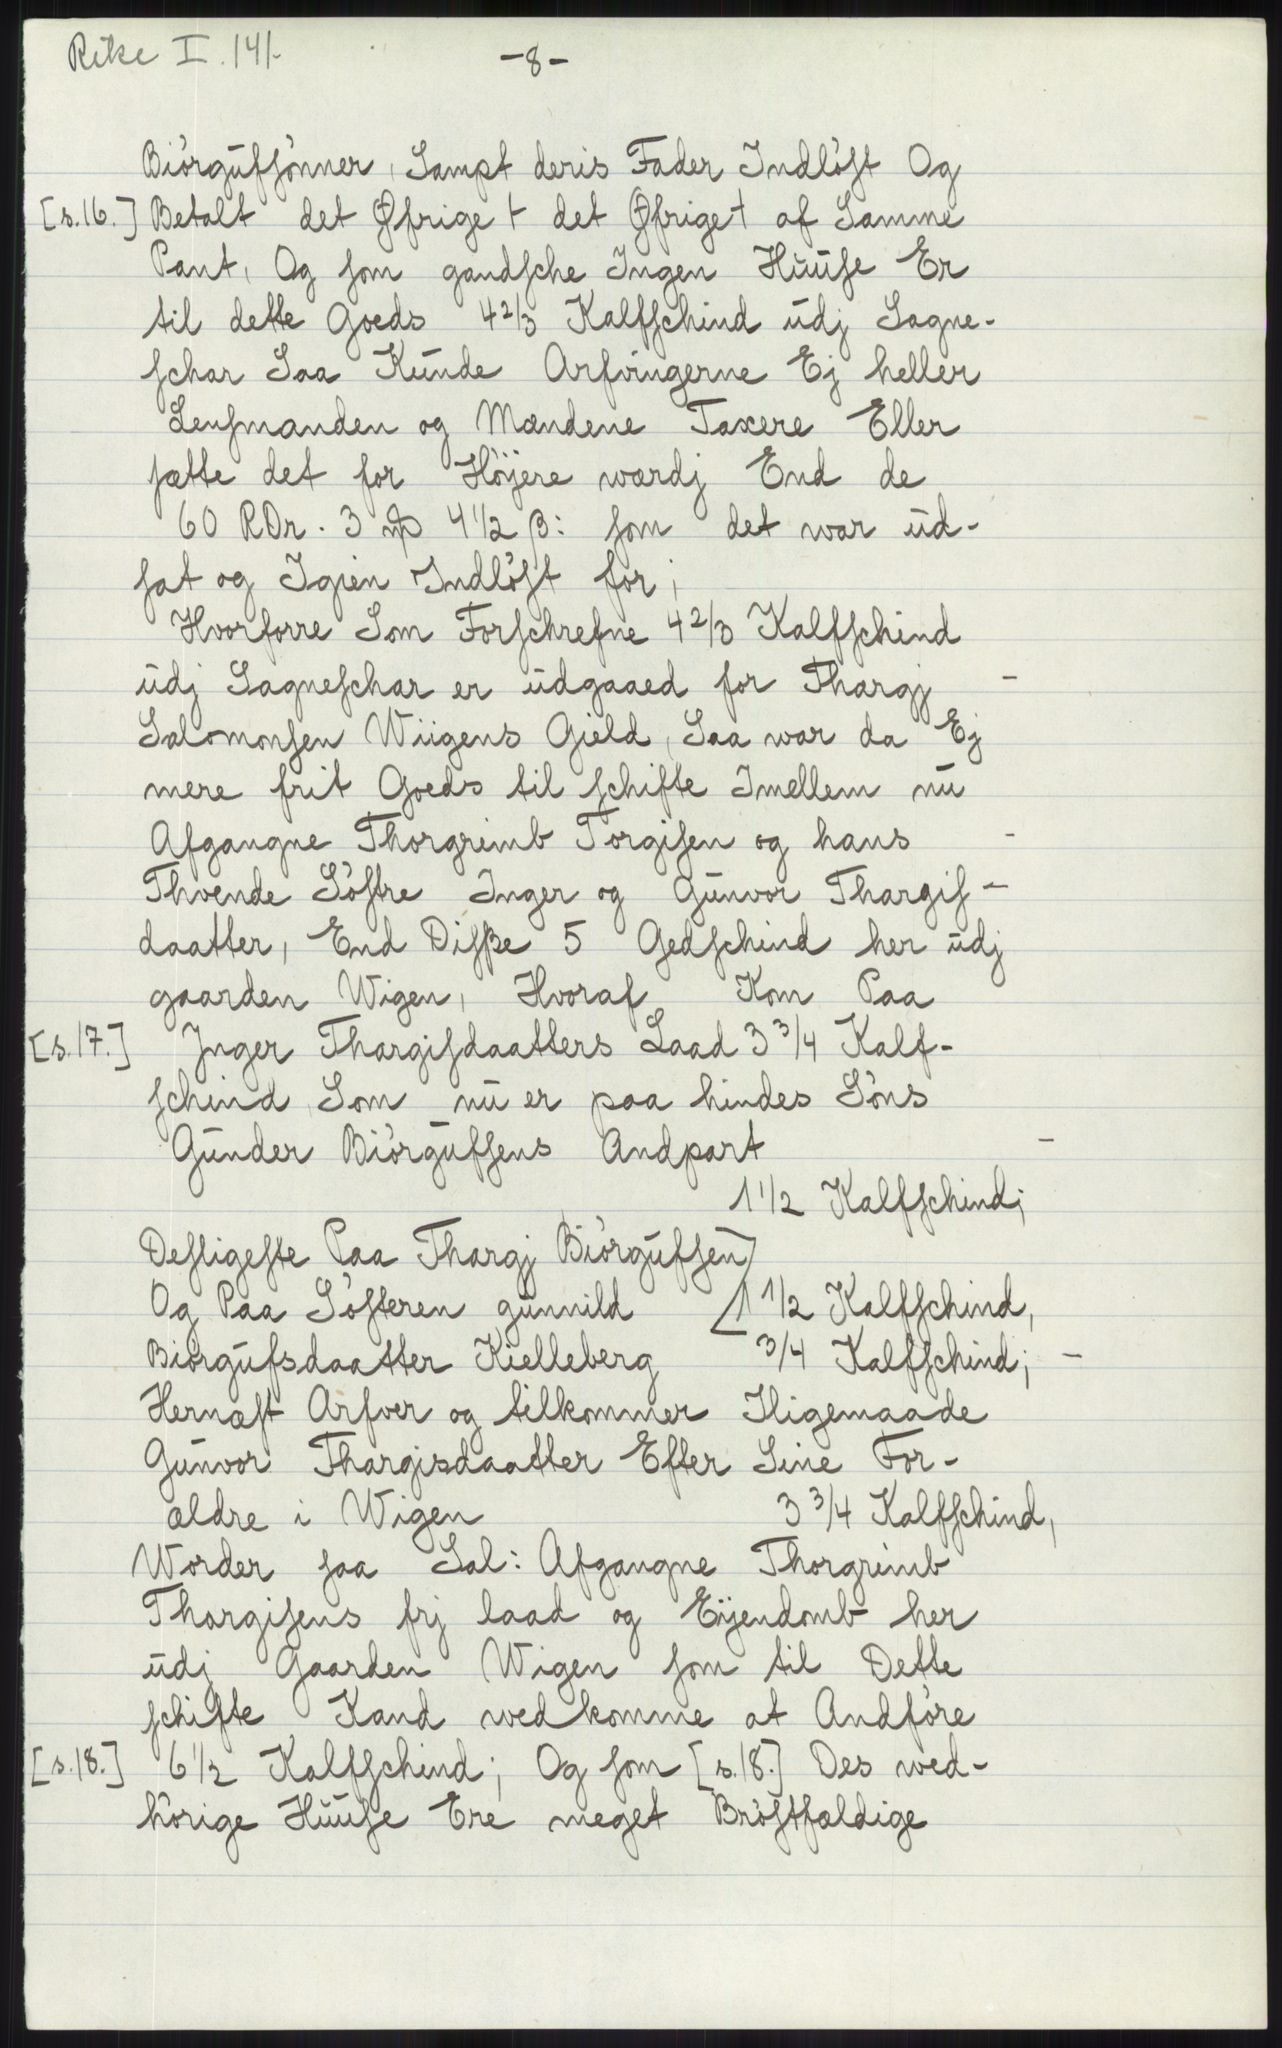 Rike I. 141.
-8-
Biórgufsónner, Sampt deris Fader Indlóst Og
[s.16.] Betalt det Øfrige + det Øfrige + af Samme
Pant, Og som gandsche Ingen Huuse Er
til dette Goeds 4 2/3 Kalfschind udj Sagne-
schar Saa Kunde Arfvingerne Ej heller
Lensmanden og Mændene Taxere Eller
sætte det for Hòyere wærdj End de
60 RDr. 3 mß 4 1/2 β: som det war ud-
sat og Igien Indlóst for;
Hvorforre Som Forschrefne 4 2/3 Kalfschind
udj Sagneschar er udgaaed for Thargj -
Salomonsen Wiigens Gield, Saa war da Ej
mere frit Goeds til schifte Imellem nu
Afgangne Thorgrimb Torgisen og hans -
Thvende Sóstre Inger og Gunvor Thargis-
daatter, End Disße 5 Gedschind her udj
gaarden Wigen, Hvoraf Kom Paa
[s.17.] Inger Thargisdaatters Laad 3 3/4 Kalf-
schind, Som nu er paa hindes Sóns
Gunder Biórgufsens Andpart -
1 1/2 Kalfschind;
Desligeste Paa Thargj Biórgufsen
Og Paa Sósteren gunnild 1 1/2 Kalfschind,
Biórgufsdaatter Kielleberg 3/4 Kalfschind; -
Hernæst Arfver og tilkommer Iligemaade
Gunvor Thargisdaatter Efter Sine For-
ældre i Wigen 3 3/4 Kalfschind,
Worder saa Sal: Afgangne Thorgrimb
Thorgisens frj laad og Eÿendomb her
udj Gaarden Wigen som til Dette
schifte Kand wedkomme at Andfóre
[s.18.] 6 1/2 Kalfschind; Og som [s.18.] Des wed-
hórige Huuse Ere meget Bróstfældige